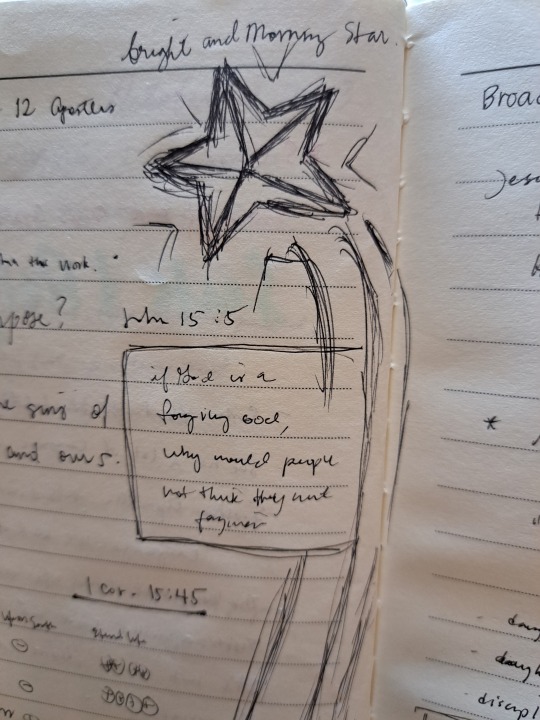 bright and Morning Star.
- 12 Apostles
the work.
pose?
John 15:5
if God is a
forgiving God,
why would people
not think they not
the sins of
and ours.
1 cor. 15:45
Broad
Jesu
*
daug
daugh
discipl